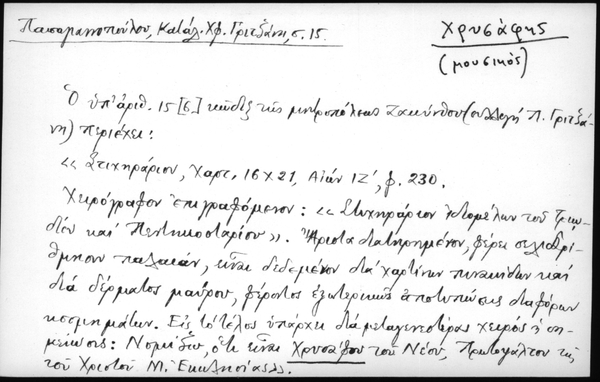 Παπαμανοπούλου, Κατάλ. Χφ. Γριτσάνη, σ. 15.
Χρυσάφης
(μουσικός)
Ὁ ὑπ' ἀριθ. 15 [6] κώδιξ τῆς μητροπόλεως Ζακύνθου (συλλογή Π. Γριτσά-
νη) περιέχει:
«Στιχηράριον, Χαρτ. 16 Χ 21, Αἰών ΙΖ', φ. 230.
Χειρόγραφον ἐπιγραφόμενον: «Στιχηράριον ἰδιομέλων τοῦ Τριω-
δίου καί Πεντηκοσταρίου». Ἄριστα διατηρημένον, φέρει σελιδαρί-
θμησιν παλαιάν, εἶναι δεδεμένον διά χαρτίνων πινακίδων καί
διά δέρματος μαύρου, φέροντος ἐξωτερικῶς ἀποτυπώσεις διαφόρων
κοσμημάτων. Εἰς τό τέλος ὑπάρχει διά μεταγενεστέρας χειρός ἡ ση-
μείωσις: Νομίζω, ὅτι εἶναι Χρυσάφου τοῦ Νέου, Πρωτοψάλτου τῆς
τοῦ Χριστοῦ Μ. Ἐκκλησίας».